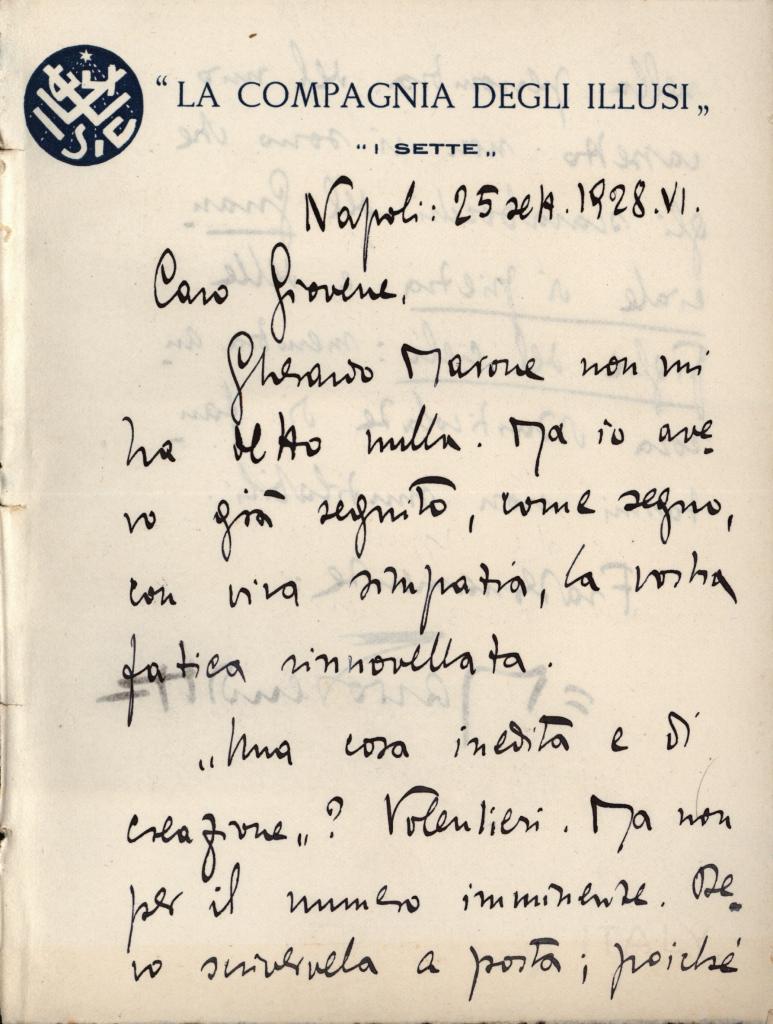 "LA COMPAGNIA DEGLI ILLUSI„
"I SETTE„
Napoli: 25 sett. 1928.VI.
Caro Giovene,
Gherardo Marone non mi
ha detto nulla. Ma io ave-
vo già seguito, come seguo,
con viva simpatia, la vostra
fatica rinnovellata.
„Una cosa inedita e di
creazione„? Volentieri. Ma non
per il numero imminente. De-
vo scrivervela a posta; poiché